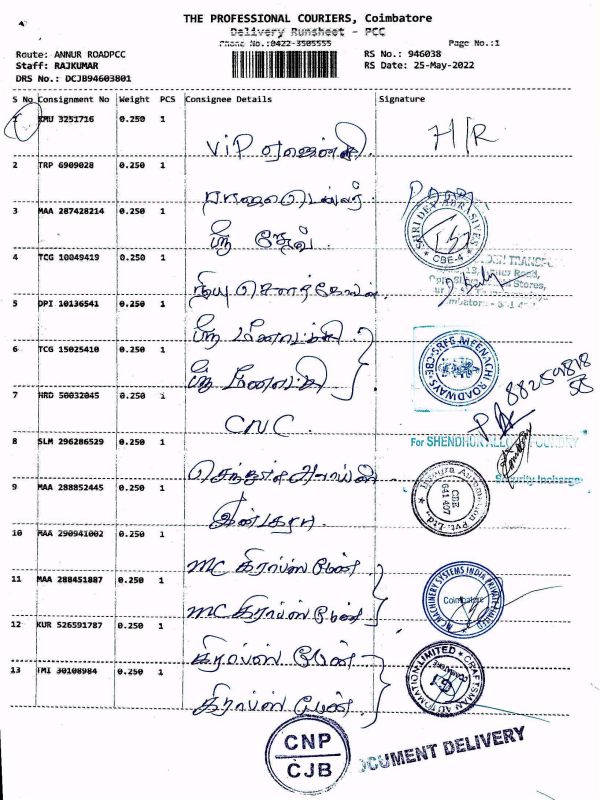 THE PROFESSIONAL COURIERS, Coimbatore
Delivery Runsheet - PCC
Phone No.:0422-3505555
Page No.:1
Route: ANNUR ROADPCC
RS No.: 946038
Staff: RAJKUMAR
RS Date: 25-May-2022
DRS No.: DCJB94603801
S No Consignment No Weight PCS Consignee Details Signature
1 KMU 3251716 0.250 1
VIP ஏஜென்சி H/R
2 TRP 6909028 0.250 1
3 MAA 287428214 0.250 1
ஸ்ரீ தேவ் SHRI DEV ABRASIVES CBE-4
4 TCG 10049419 0.250 1
நியு
5 DPI 10136541 0.250 1
ஸ்ரீ மீனாட்சி
6 TCG 15025410 0.250 1
ஸ்ரீ மீனாட்சி SREE MEENACHI ROADWAYS CBE
7 HRD 50032045 0.250 1
CNC
8 SLM 296286529 0.250 1
For SHENDHUR ALLOY FOUNDRY
Security Incharge
9 MAA 288852445 0.250 1
Automation Pvt. Ltd., CBE 641 407
10 MAA 290941002 0.250 1
MC கிராப்ஸ் மேன்
11 MAA 288451887 0.250 1
MC கிராப்ஸ் மேன் MC MACHINERY SYSTEMS INDIA PRIVATE LIMITED Coimbatore
12 KUR 526591787 0.250 1
கிராப்ஸ் மேன்
13 TMI 30108984 0.250 1
கிராப்ஸ் மேன் CRAFTSMAN AUTOMATION LIMITED
CNP
CJB
DOCUMENT DELIVERY